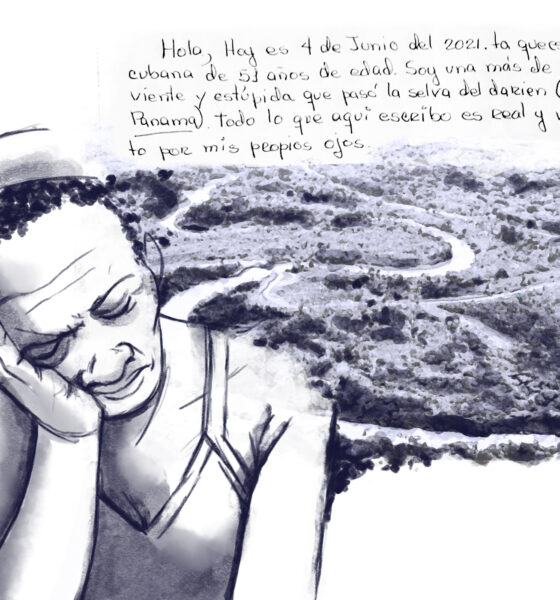 Hola, Hoy es 4 de Junio del 2021. la que es
cubana de 53 años de edad. Soy una más de
viente y estúpida que pasó la selva del darien (
Panamá). Todo lo que aquí escribo es real y
to por mis propios ojos.